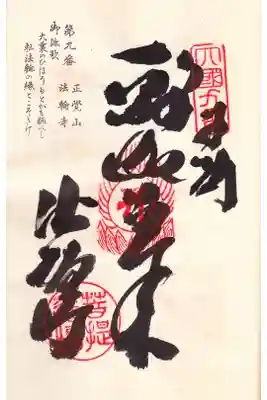 四國第九番
奉納
釈迦如来
法輪寺
菩提
第九番 正覚山
法輪寺
御詠歌
大乗のひほうもとがもひるがへし
転法輪の縁とこそきけ